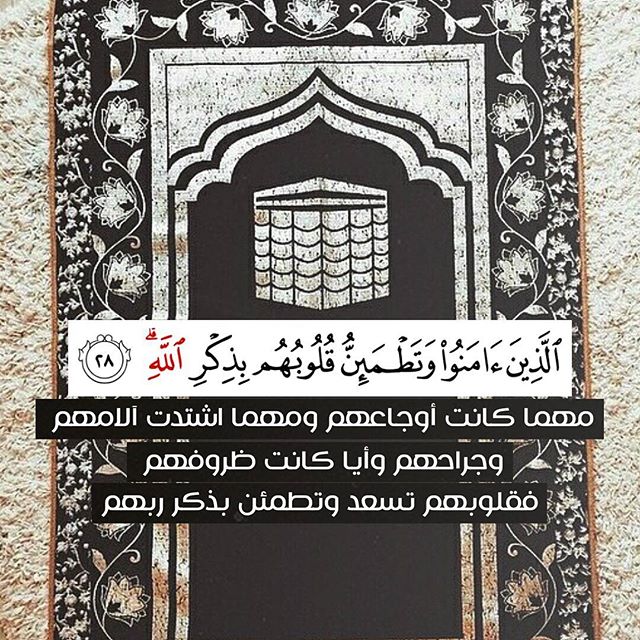 ٱلَّذِينَ ءَامَنُوا۟ وَتَطْمَئِنُّ قُلُوبُهُم بِذِكْرِ ٱللَّهِ ۗ ٢٨
مهما كانت أوجاعهم ومهما اشتدت آلامهم
وجراحهم وأيا كانت ظروفهم
فقلوبهم تسعد وتطمئن بذكر ربهم